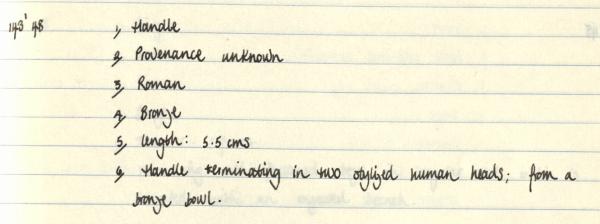 143'48 1, Handle
2, Provenance unknown
3, Roman
4, Bronze
5, length: 5.5 cms
6, Handle terminating in two stylized human heads; from a
bronze bowl.